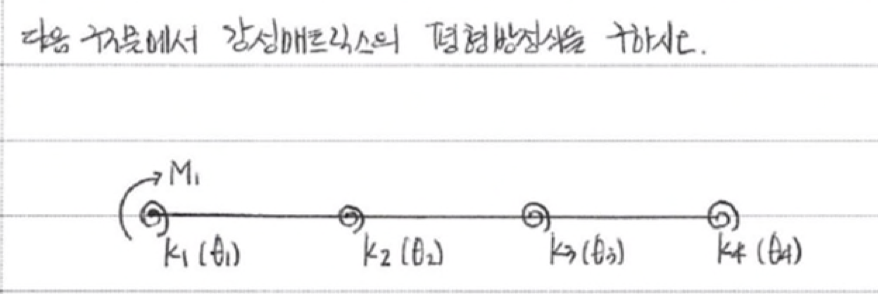 다음 구조물에서 강성매트릭스의 평형방정식을 구하시오.
M₁
k₁(θ₁) k₂(θ₂) k₃(θ₃) k₄(θ₄)